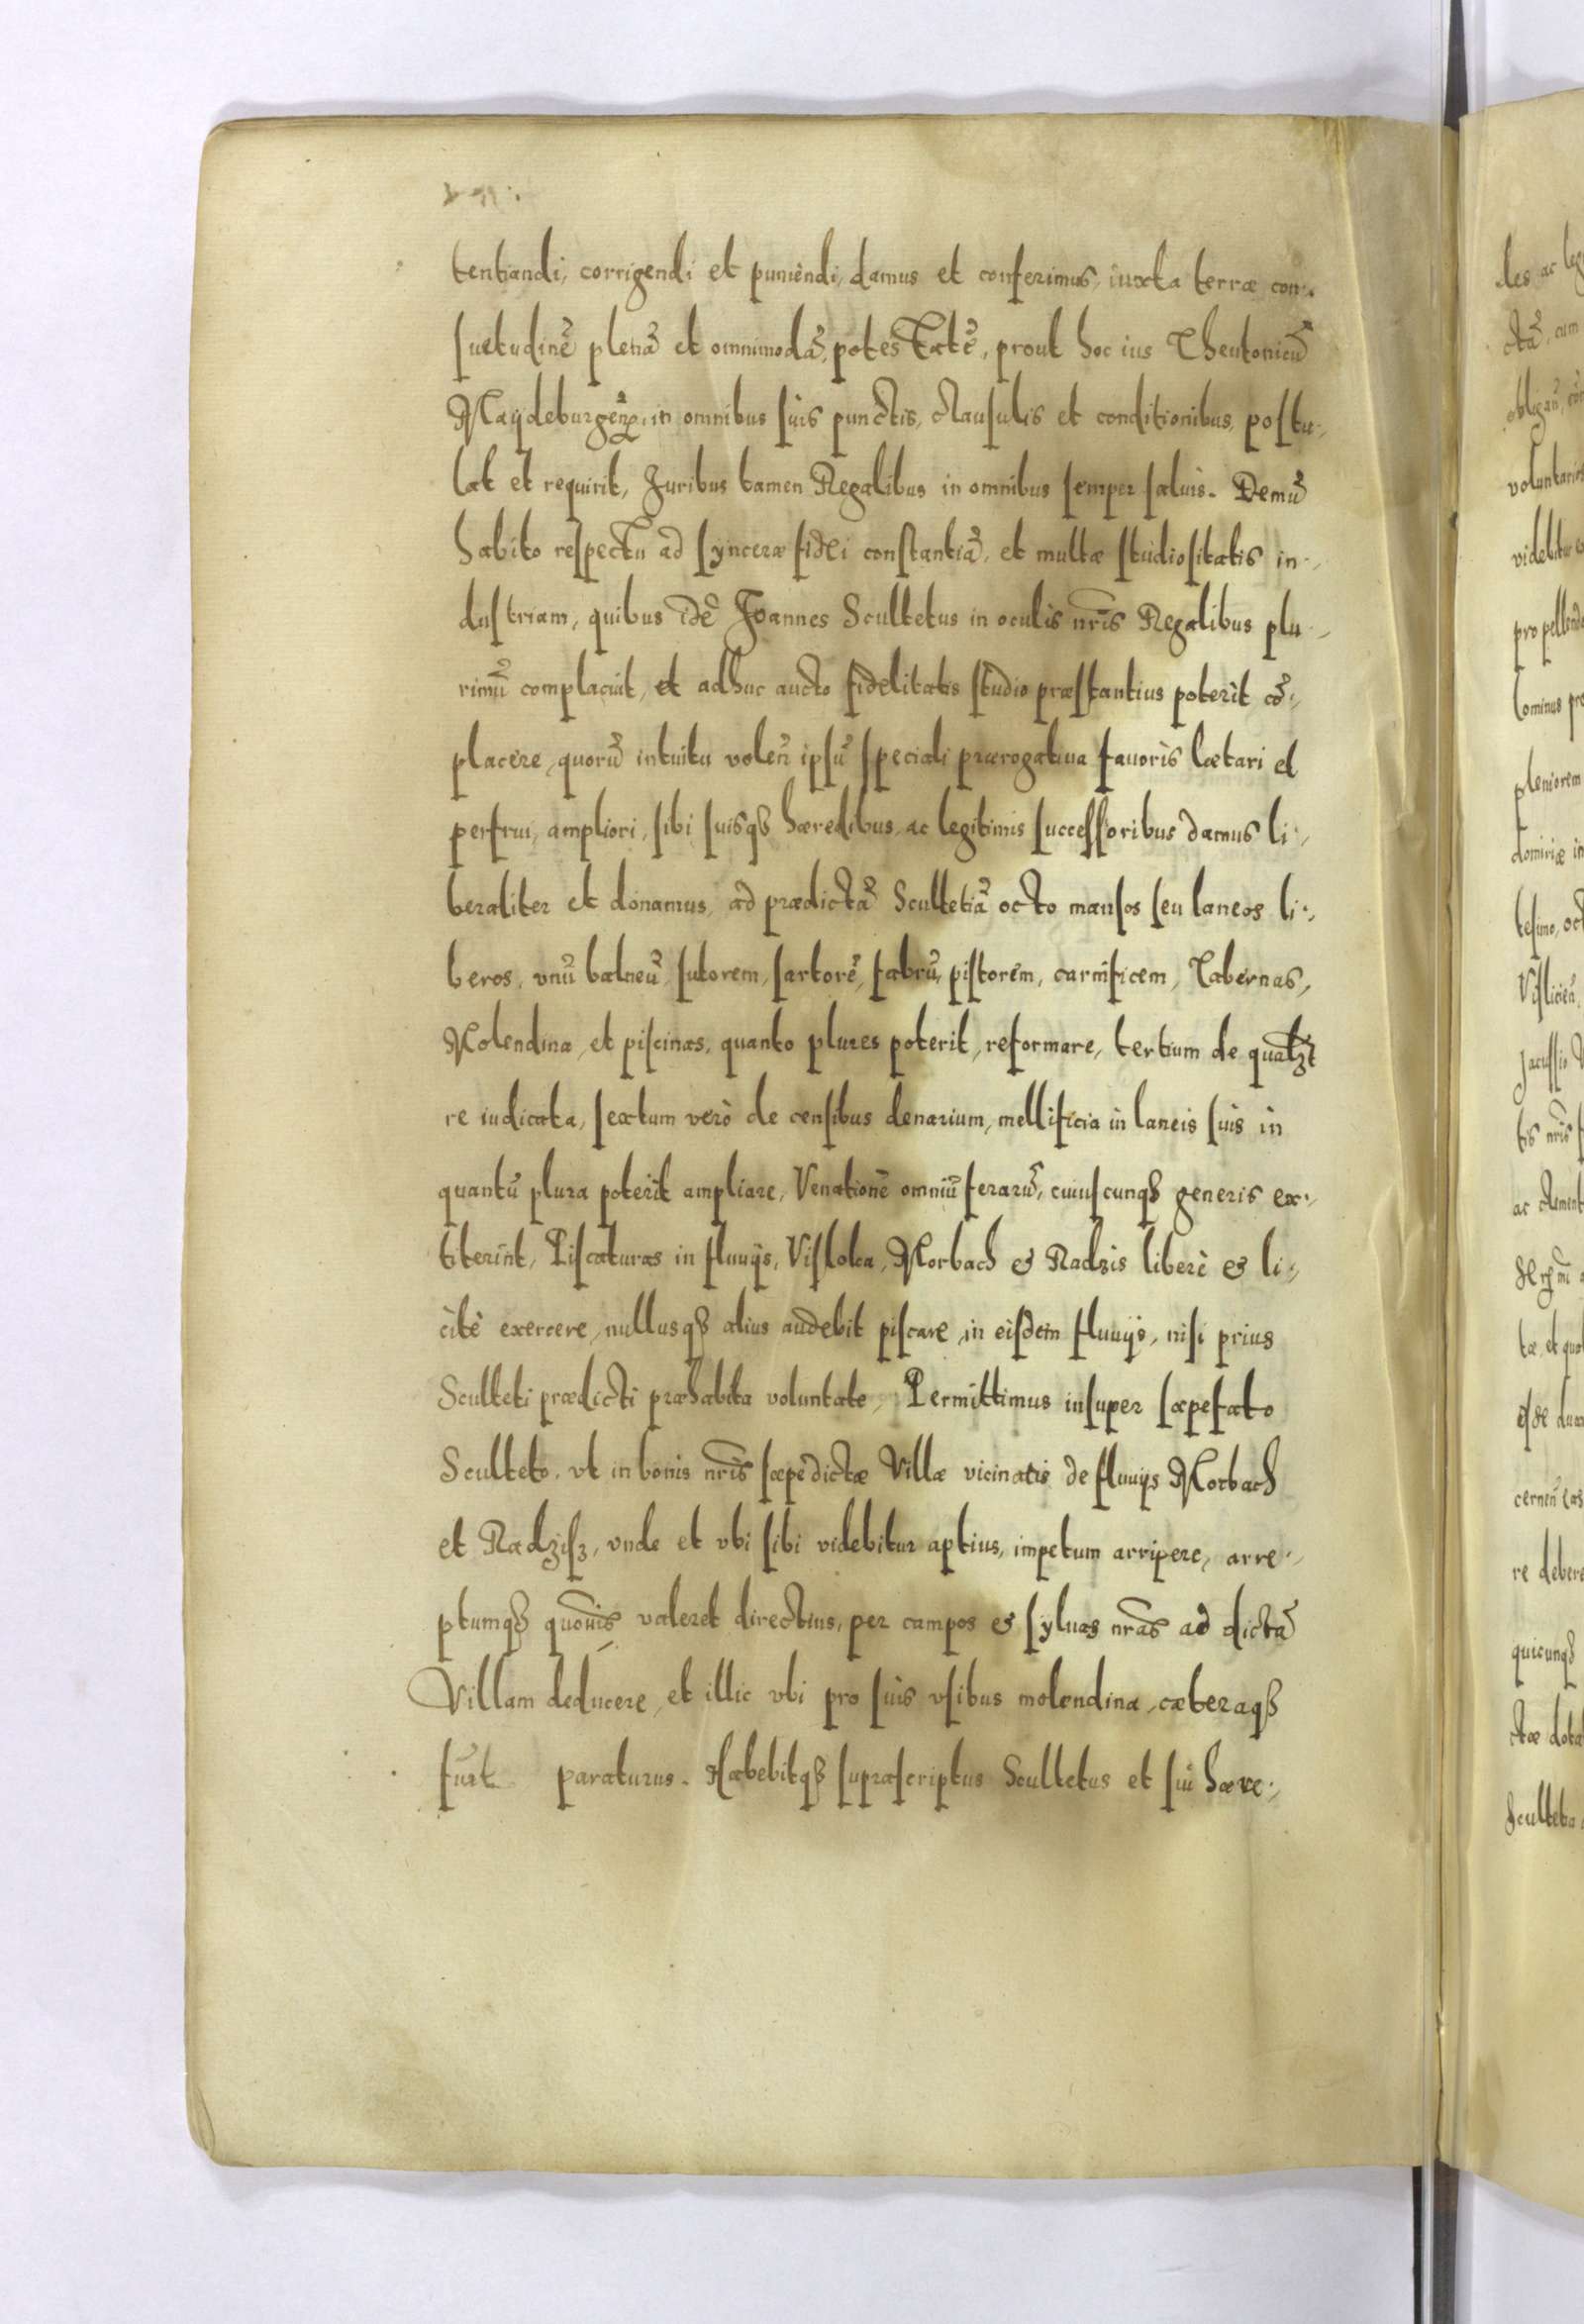 tentiandi, corrigendi et puniendi, damus et conferimus, iuxta terræ con-
suetudinẽ plenã et omnimodã, potestatẽ, prout hoc ius Theutonicũ
Maÿdeburgeñ, in omnibus suis punctis, clausulis et conditionibus, postu-
lat et requirit, Juribus tamen Regalibus in omnibus semper saluis. Demũ
habito respectu ad synceræ fidei constantiã, et multæ studiositatis in-
dustriam, quibus idẽ Joannes Scultetus in oculis nr̃is Regalibus plu-
rimũ complacuit, et adhuc aucto fidelitatis studio præstantius poterit cõ-
placere, quorũ intuitu voleñ ipsũ speciali prærogatiua fauoris lætari et
perfrui, ampliori, sibi suisqȝ hæredibus, ac legitimis successoribus damus li-
beraliter et donamus, ad prædictã Scultetiã octo mansos seu laneos li-
beros, vnũ balneũ, sutorem, sartorẽ, fabrũ, pistorem, carnificem, Tabernas,
Molendina, et piscinas, quanto plures poterit, reformare, tertium de qualȝt
re iudicata, sextum verò de censibus denarium, mellificia in laneis suis in
quantũ plura poterit ampliare, Venationẽ omniũ ferarũ, cuiuscunqȝ generis ex-
titerint, Piscaturas in fluuijs, Visloka, Morbach & Radzis liberè & li-
citè exercere, nullusqȝ alius audebit piscare, in eisdem fluuijs, nisi prius
Sculteti prædicti præhabita voluntate, Permittimus insuper sæpefato
Sculteto, vt in bonis nr̃is sæpedictæ Villæ vicinatis de fluuijs Morbach
et Radzisz, vnde et vbi sibi videbitur aptius, impetum arripere, arre-
ptumqȝ quouis valeret directius, per campos & syluas nr̃as ad dictã
Villam deducere, et illic vbi pro suis vsibus molendina, cæteraqȝ
paraturus. Habebitqȝ supræscriptus Scultetus et sui hære-